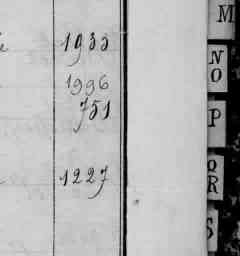 1933
1996
751
1227
M
N
O
P
Q
R
S